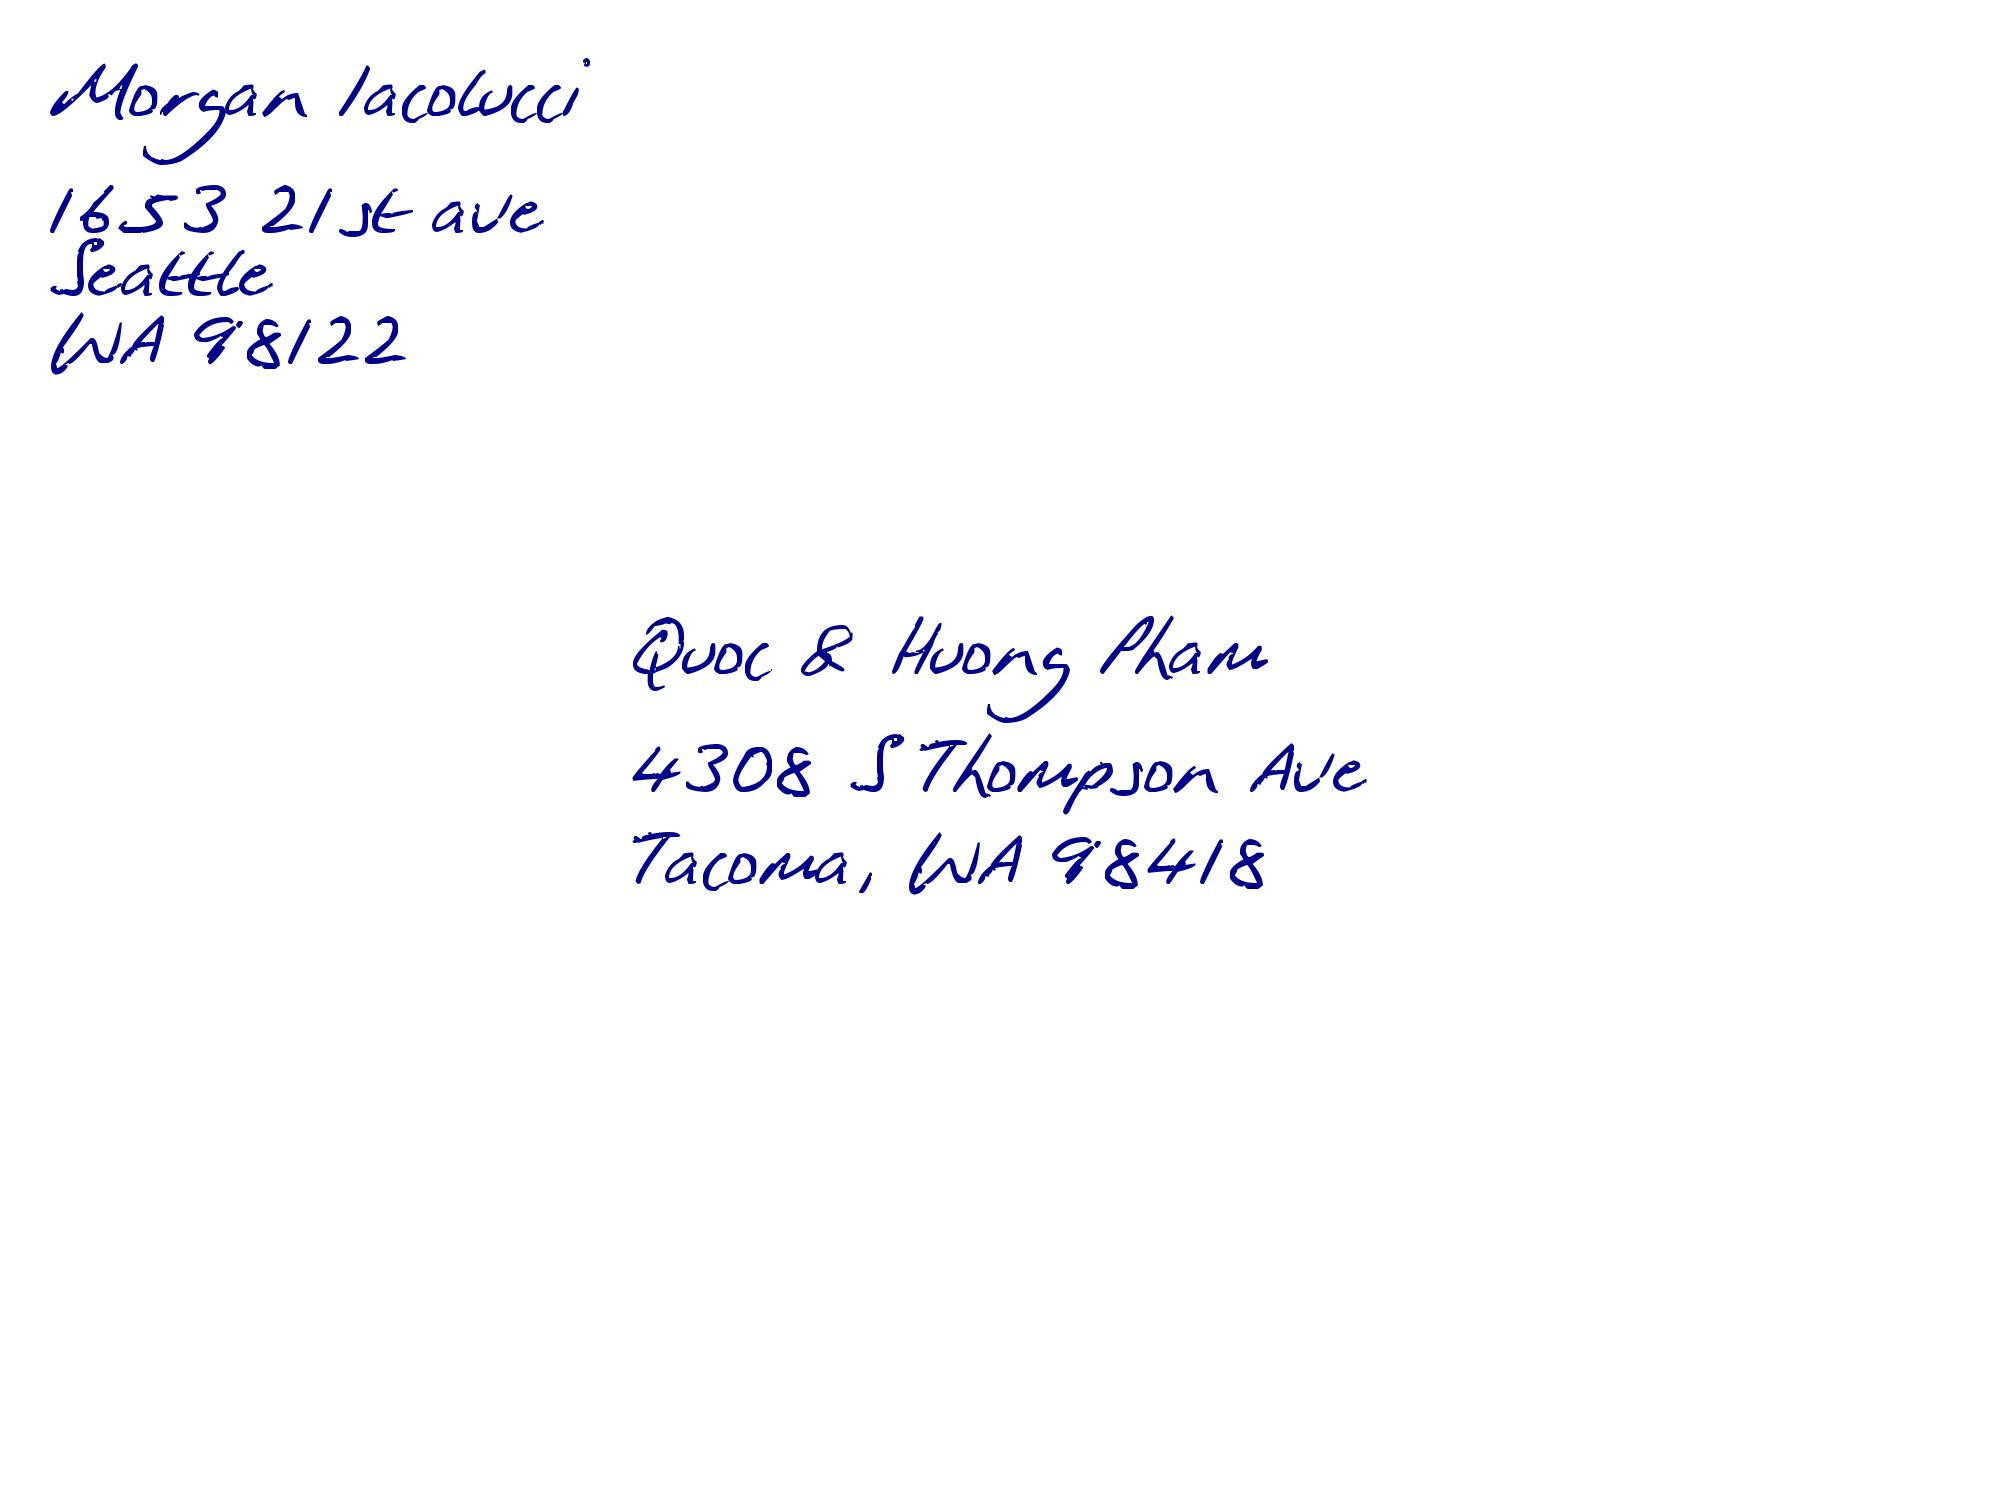 Morgan Iacolucci
1653 21st ave
Seattle
WA 98122
Quoc & Huong Pham
4308 S Thompson Ave
Tacoma, WA 98418